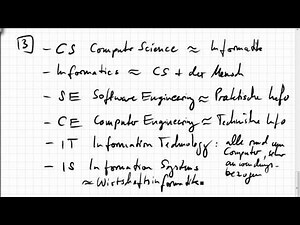 3
- CS Computer Science ≈ Informatik
- Informatics ≈ CS + der Mensch
- SE Software Engineering ≈ Praktische Info
- CE Computer Engineering ≈ Technische Info
- IT Information Technology : alle rund um
Computer, sehr
anwendungs-
bezogen
- IS Information Systems
≈ Wirtschaftsinformatik